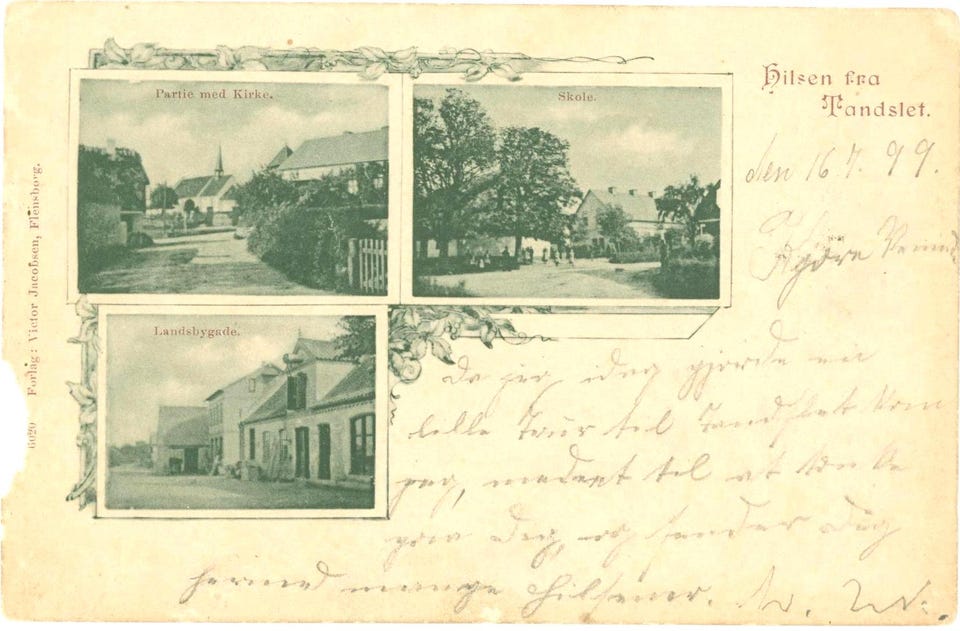 Partie med Kirke.
Skole.
Hilsen fra
Tandslet.
den 16 7. 99.
Landsbygade.
6020 Forlag: Victor Jacobsen, Flensborg.
Kjære
Da jeg idag gjorde
lille Tour til Tandslet kom
jeg, til at
paa Dig, og sender Dig
hermed mange Hilsener.